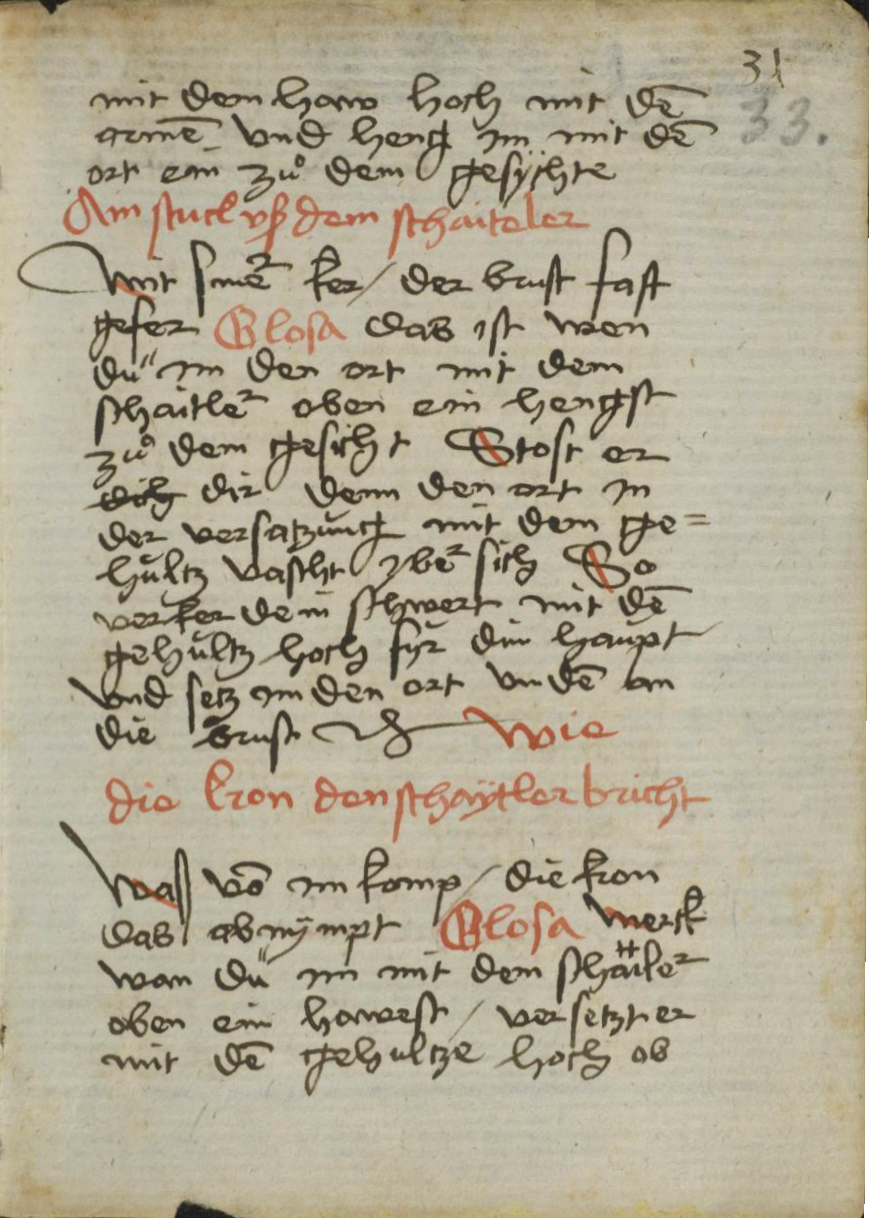 31
33.
mit dem haw hoch mit dē
armē vnd heng im mit dē
ort ein zů dem gesÿchte
Ain stuck vß dem schaiteler
Mit siner ker / der brust fast
gefer Glosa das ist wen
du im den ort mit dem
schaitler oben ein hengst
zů dem gesicht Stost er
dich dir denn den ort in
der versatzung mit dem ge=
hültz vascht vber sich So
verker dein schwert mit dē
gehültz hoch für din haupt
vnd setz im den ort vndē an
die brust Wie
die kron den schaÿtler bricht
Waß vō im komp / die kron
das abnÿmpt Glosa merck
wan du im mit dem schäiler
oben ein hawest / versetzt er
mit dē gehultze hoch ob